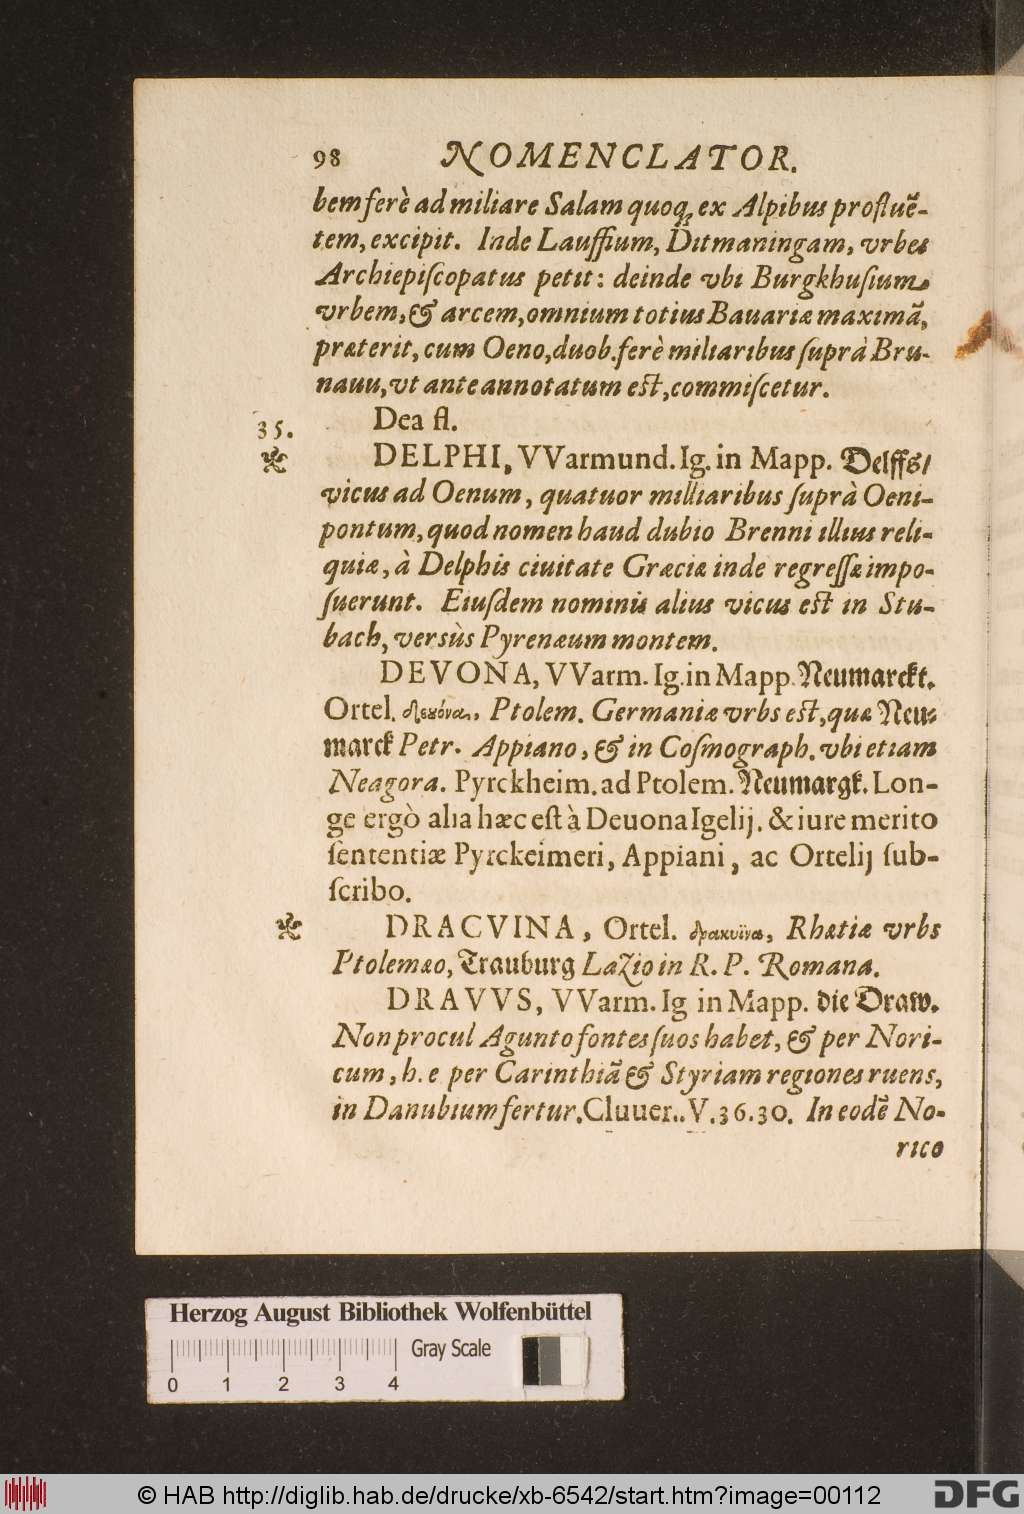 98 NOMENCLATOR.
bem ferè ad miliare Salam quoq; ex Alpibus profluẽ-
tem, excipit. Inde Lauffium, Ditmaningam, vrbes
Archiepiſcopatus petit: deinde vbi Burgkhuſium
vrbem, & arcem, omnium totius Bauariæ maximã,
præterit, cum Oeno, duob. ferè miliaribus ſuprà Bru-
nauu, vt ante annotatum est, commiſcetur.
35. Dea fl.
DELPHI, VVarmund. Ig. in Mapp. Delffs/
vicus ad Oenum, quatuor milliaribus ſuprà Oeni-
pontum, quod nomen haud dubio Brenni illius reli-
quiæ, à Delphis ciuitate Græciæ inde regreſſæ impo-
ſuerunt. Eiuſdem nominis alius vicus est in Stu-
bach, versùs Pyrenæum montem.
DEVONA, VVarm. Ig. in Mapp. Neumarckt.
Ortel. Ptolem. Germaniæ vrbs est, quæ Neu-
marck Petr. Appiano, & in Coſmograph. vbi etiam
Neagora. Pyrckheim. ad Ptolem. Neumargk. Lon-
ge ergò alia hæc eſt à Deuona Igelij. & iure merito
ſententiæ Pyrckeimeri, Appiani, ac Ortelij ſub-
ſcribo.
DRACVINA, Ortel. δρακυΐνα, Rhætiæ vrbs
Ptolemæo, Trauburg Lazio in R. P. Romana.
DRAVVS, VVarm. Ig in Mapp. die Draw.
Non procul Agunto fontes ſuos habet, & per Nori-
cum, h. e per Carinthiã & Styriam regiones ruens,
in Danubium fertur. Cluuer.. V. 36. 30. In eodẽ No-
rico
Herzog August Bibliothek Wolfenbüttel
Gray Scale
0 1 2 3 4
© HAB http://diglib.hab.de/drucke/xb-6542/start.htm?image=00112
DFG